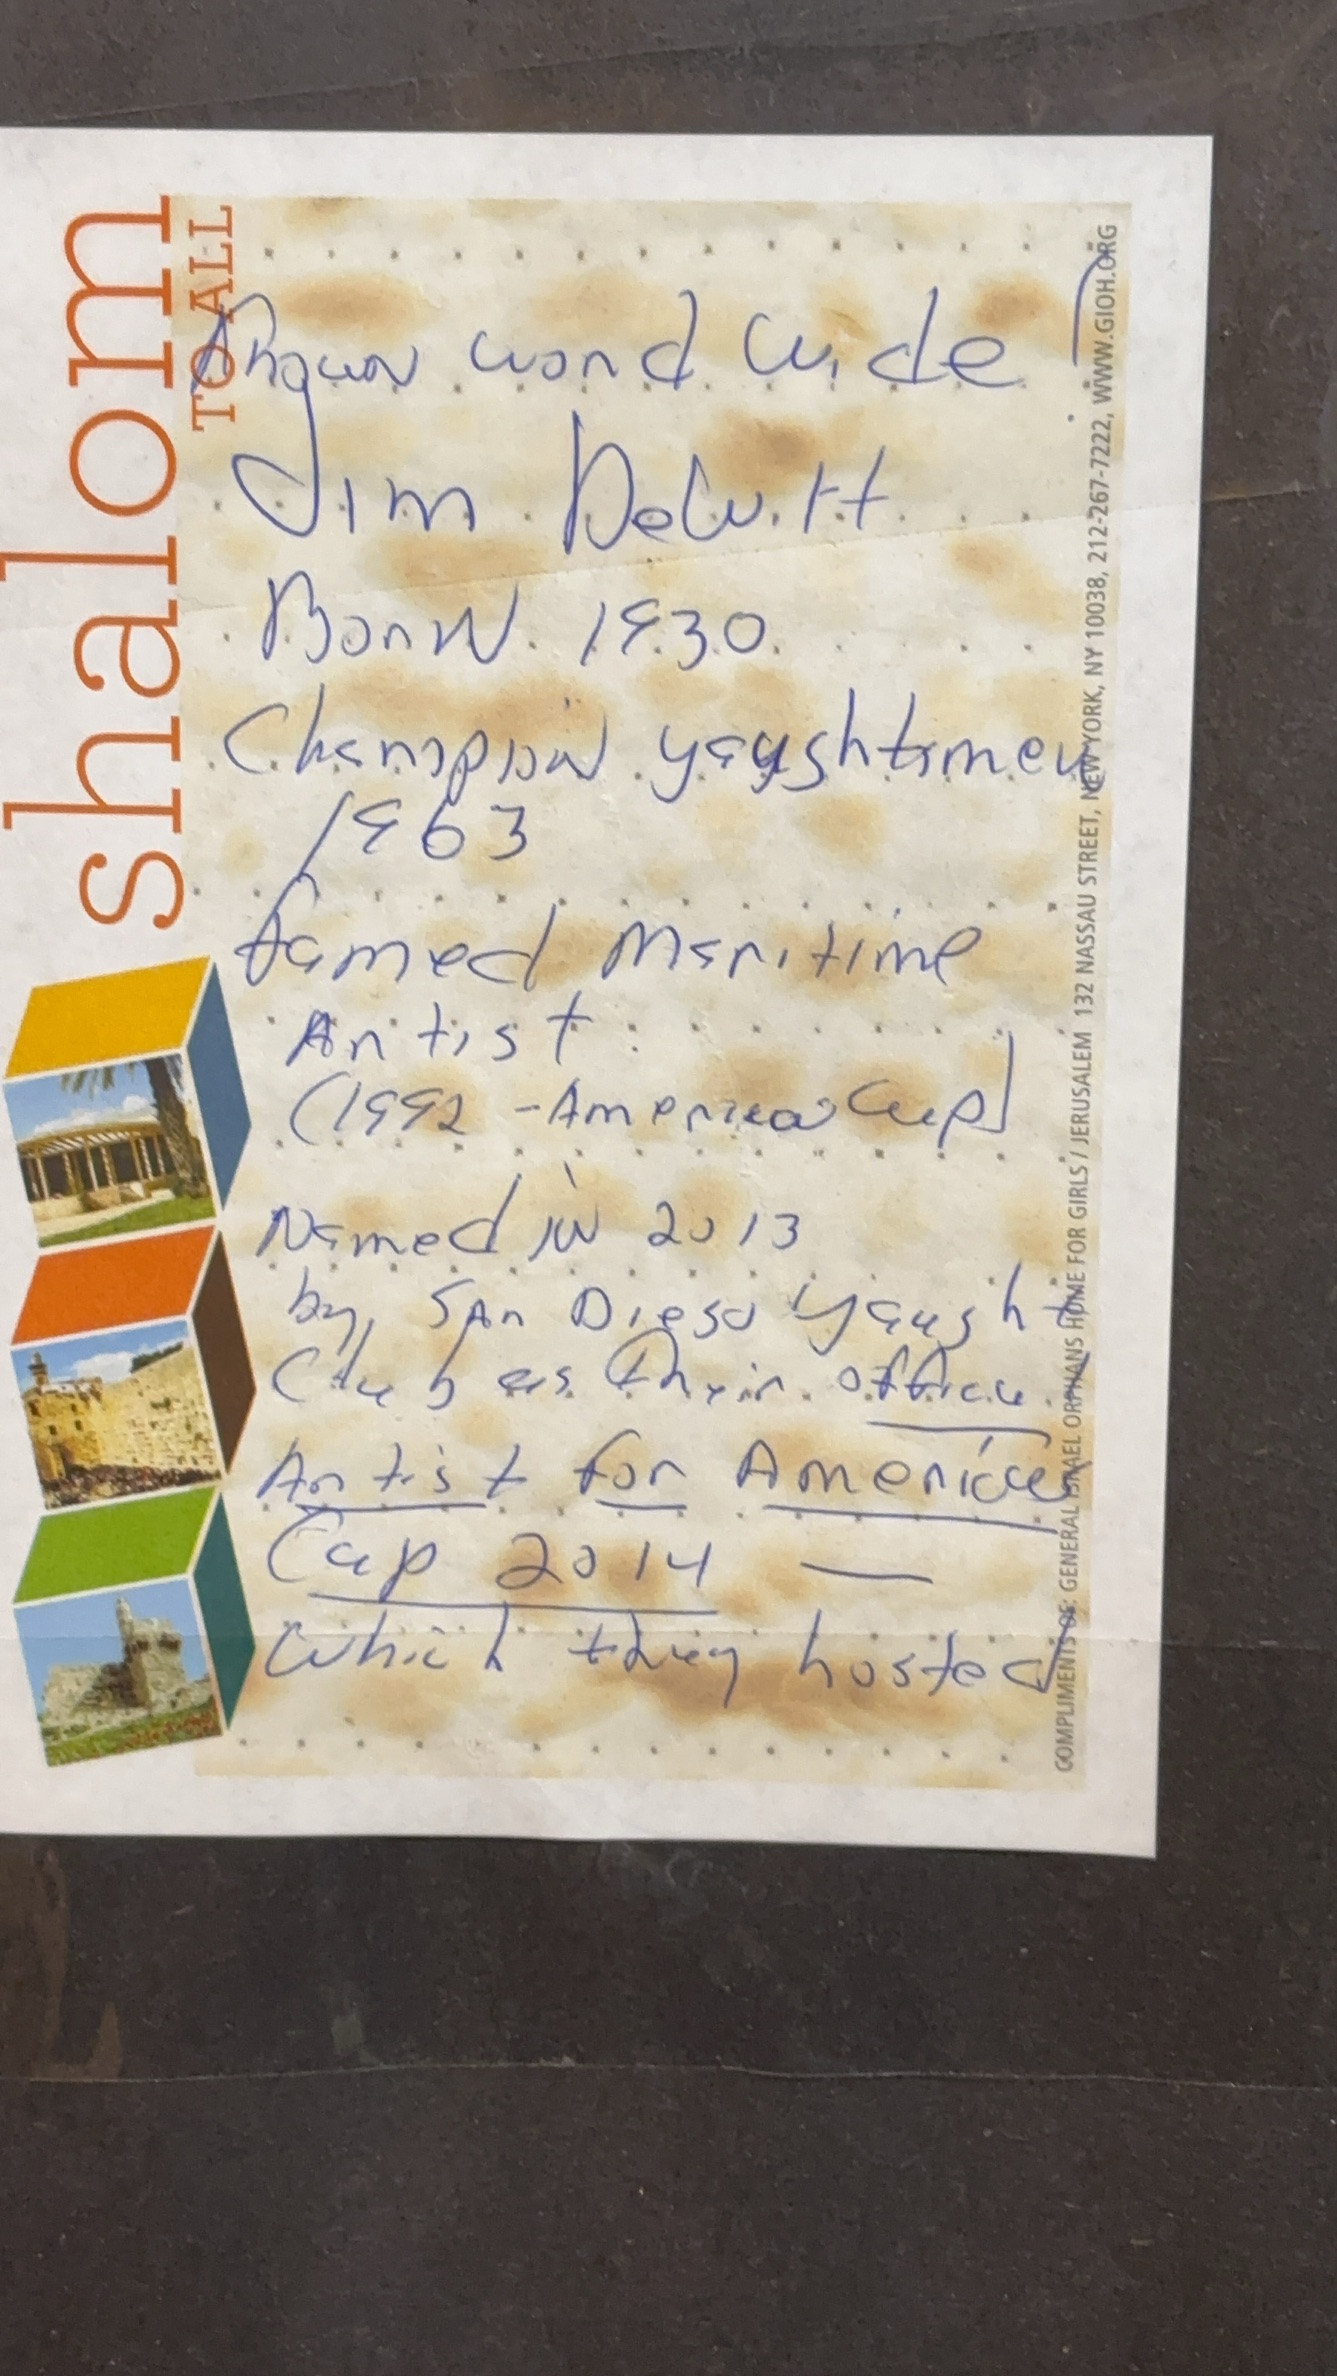 shalom
TO ALL
wond wide!
Jim DeWitt
Born 1930
Champion yaughtsmen
1963
famed Maritime
Artist
(1992 - America Cup)
Named in 2013
by San Diego Yaught
Club as their office
Artist for America
Cup 2014 —
which they hosted
COMPLIMENTS OF: GENERAL ISRAEL ORPHANS HOME FOR GIRLS / JERUSALEM 132 NASSAU STREET, NEW YORK, NY 10038, 212-267-7222, WWW.GIOH.ORG